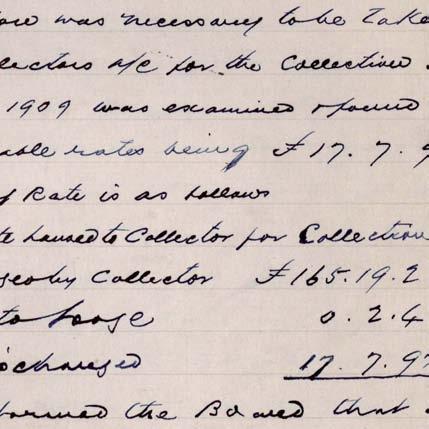 was necessary to be take
lectors a/c for the Collection
1909 was examined & found
able rates being £17. 7. 9
Rate is as follows
to Collector for Collection
by Collector £165.19.2
0. 2. 4
17. 7. 9
the Board that